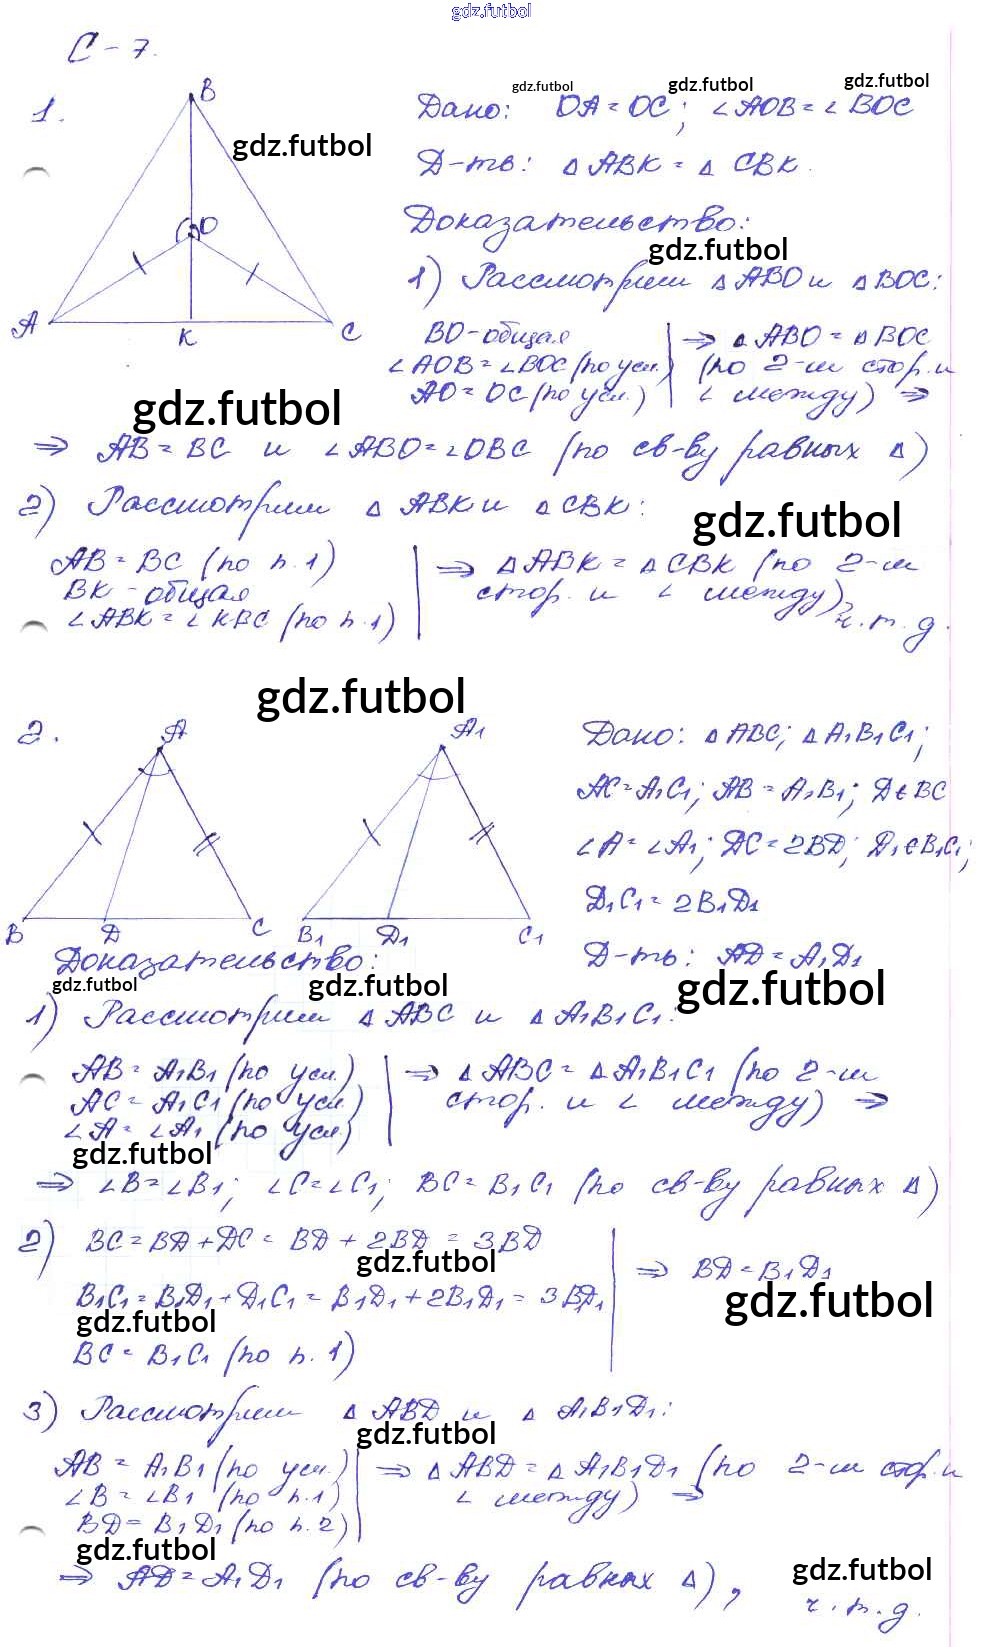 gdz.futbol
С-7.
1.
B
O
A
K
C
gdz.futbol
gdz.futbol gdz.futbol gdz.futbol
Дано: OA = OC; ∠AOB = ∠BOC
Д-ть: △ABK = △CBK.
Доказательство:
gdz.futbol
1) Рассмотрим △ABO и △BOC:
BO - общая
∠AOB = ∠BOC (по усл.)
AO = OC (по усл.)
⇒ △ABO = △BOC
(по 2-м стор. и
∠ между) ⇒
gdz.futbol
⇒ AB = BC и ∠ABO = ∠OBC (по св-ву равных △)
2) Рассмотрим △ABK и △CBK:
gdz.futbol
AB = BC (по п. 1)
BK - общая
∠ABK = ∠KBC (по п. 1)
⇒ △ABK = △CBK (по 2-м
стор. и ∠ между),
ч.т.д.
gdz.futbol
2.
A
B
D
C
A1
B1
D1
C1
Дано: △ABC; △A1B1C1;
AC = A1C1; AB = A1B1; D ∈ BC
∠A = ∠A1; DC = 2BD; D1 ∈ B1C1;
D1C1 = 2B1D1
Д-ть: AD = A1D1
Доказательство:
gdz.futbol gdz.futbol gdz.futbol
1) Рассмотрим △ABC и △A1B1C1:
AB = A1B1 (по усл.)
AC = A1C1 (по усл.)
∠A = ∠A1 (по усл)
⇒ △ABC = △A1B1C1 (по 2-м
стор. и ∠ между) ⇒
gdz.futbol
⇒ ∠B = ∠B1; ∠C = ∠C1; BC = B1C1 (по св-ву равных △)
2) BC = BD + DC = BD + 2BD = 3BD
gdz.futbol
B1C1 = B1D1 + D1C1 = B1D1 + 2B1D1 = 3B1D1
gdz.futbol
BC = B1C1 (по п. 1)
⇒ BD = B1D1
gdz.futbol
3) Рассмотрим △ABD и △A1B1D1:
gdz.futbol
AB = A1B1 (по усл.)
∠B = ∠B1 (по п. 1)
BD = B1D1 (по п. 2)
⇒ △ABD = △A1B1D1 (по 2-м стор. и
∠ между) ⇒
gdz.futbol
⇒ AD = A1D1 (по св-ву равных △),
gdz.futbol
ч.т.д.